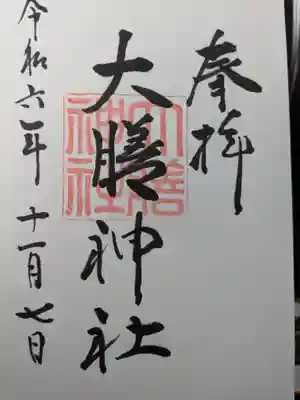 奉拝
大膳神社
令和六年 十一月七日
大膳神社